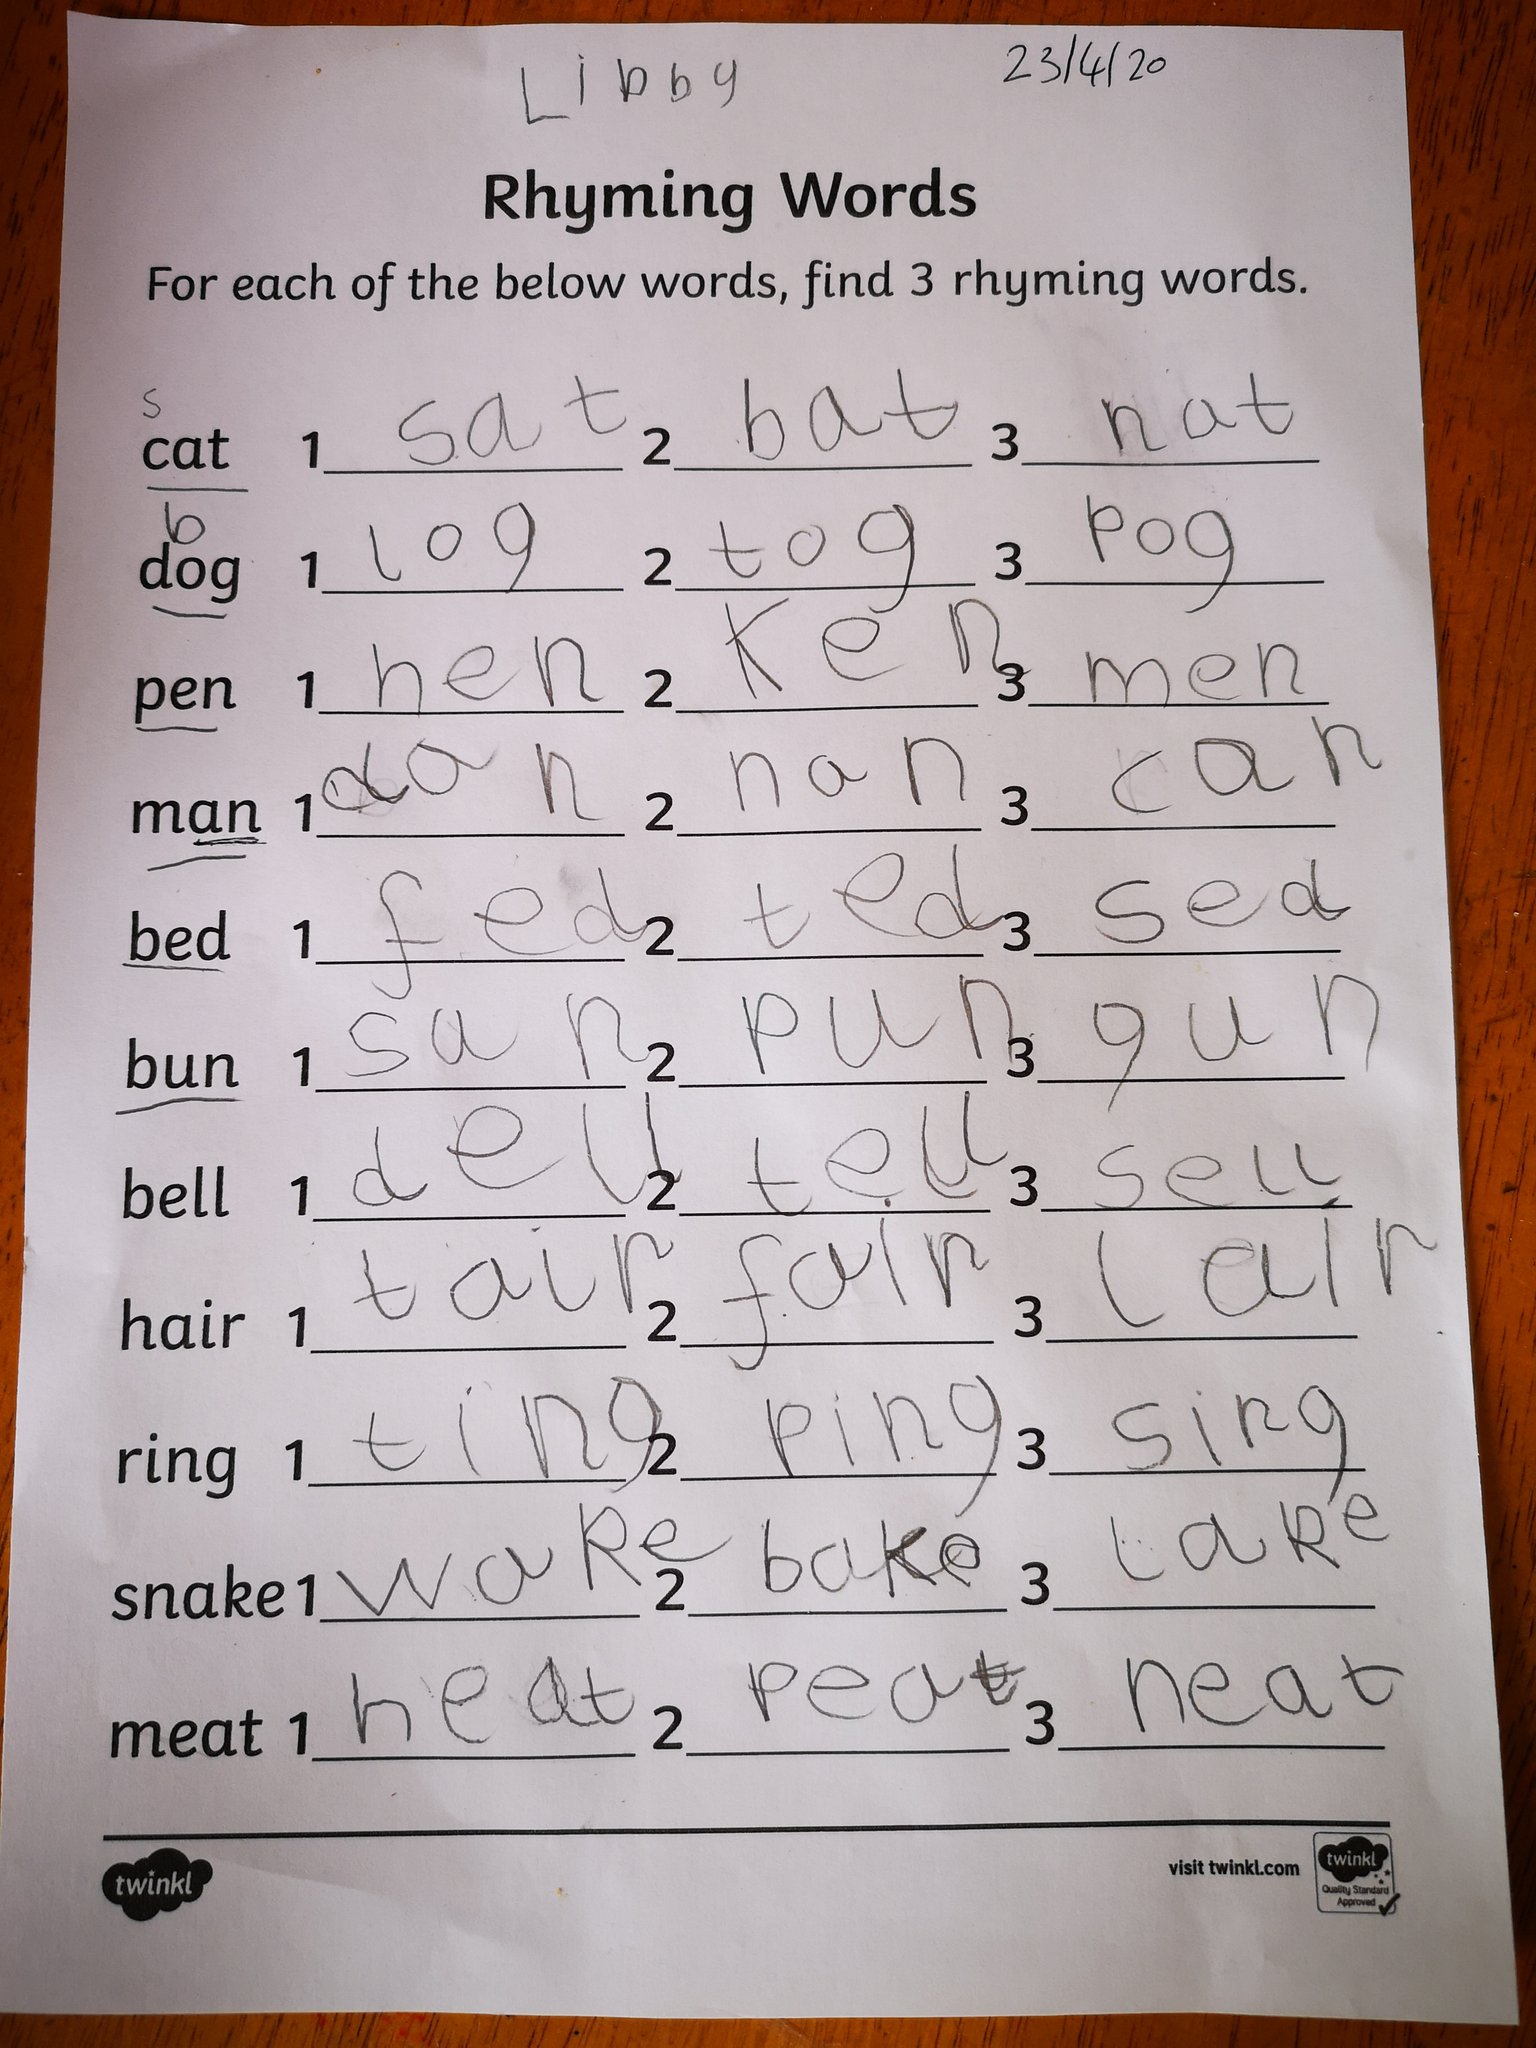 Libby 23/4/20
Rhyming Words
For each of the below words, find 3 rhyming words.
s
cat 1 sat 2 bat 3 nat
b
dog 1 log 2 tog 3 pog
pen 1 hen 2 Ken 3 men
man 1 dan 2 nan 3 can
bed 1 fed 2 ted 3 sed
bun 1 sun 2 pun 3 gun
bell 1 dell 2 tell 3 sell
hair 1 tair 2 fair 3 lair
ring 1 ting 2 ping 3 sing
snake 1 wake 2 bake 3 lake
meat 1 heat 2 peat 3 neat
twinkl visit twinkl.com twinkl
Quality Standard
Approved